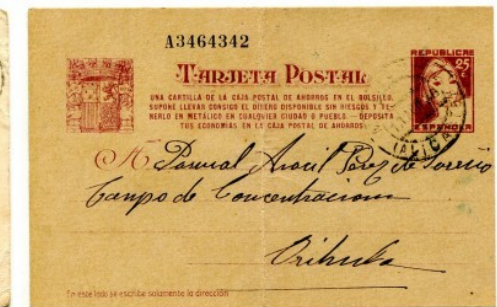 A3464342
TARJETA POSTAL
UNA CARTILLA DE LA CAJA POSTAL DE AHORROS EN EL BOLSILLO,
SUPONE LLEVAR CONSIGO EL DINERO DISPONIBLE SIN RIESGOS Y TE-
NERLO EN METÁLICO EN CUALQUIER CIUDAD O PUEBLO.—DEPOSITA
TUS ECONOMIAS EN LA CAJA POSTAL DE AHORROS.
REPUBLICA
25
ESPAÑOLA
(ALICANTE)
Pascual Aracil Perez de
Campo de Concentracion
Orihuela
En este lado se escribe solamente la dirección